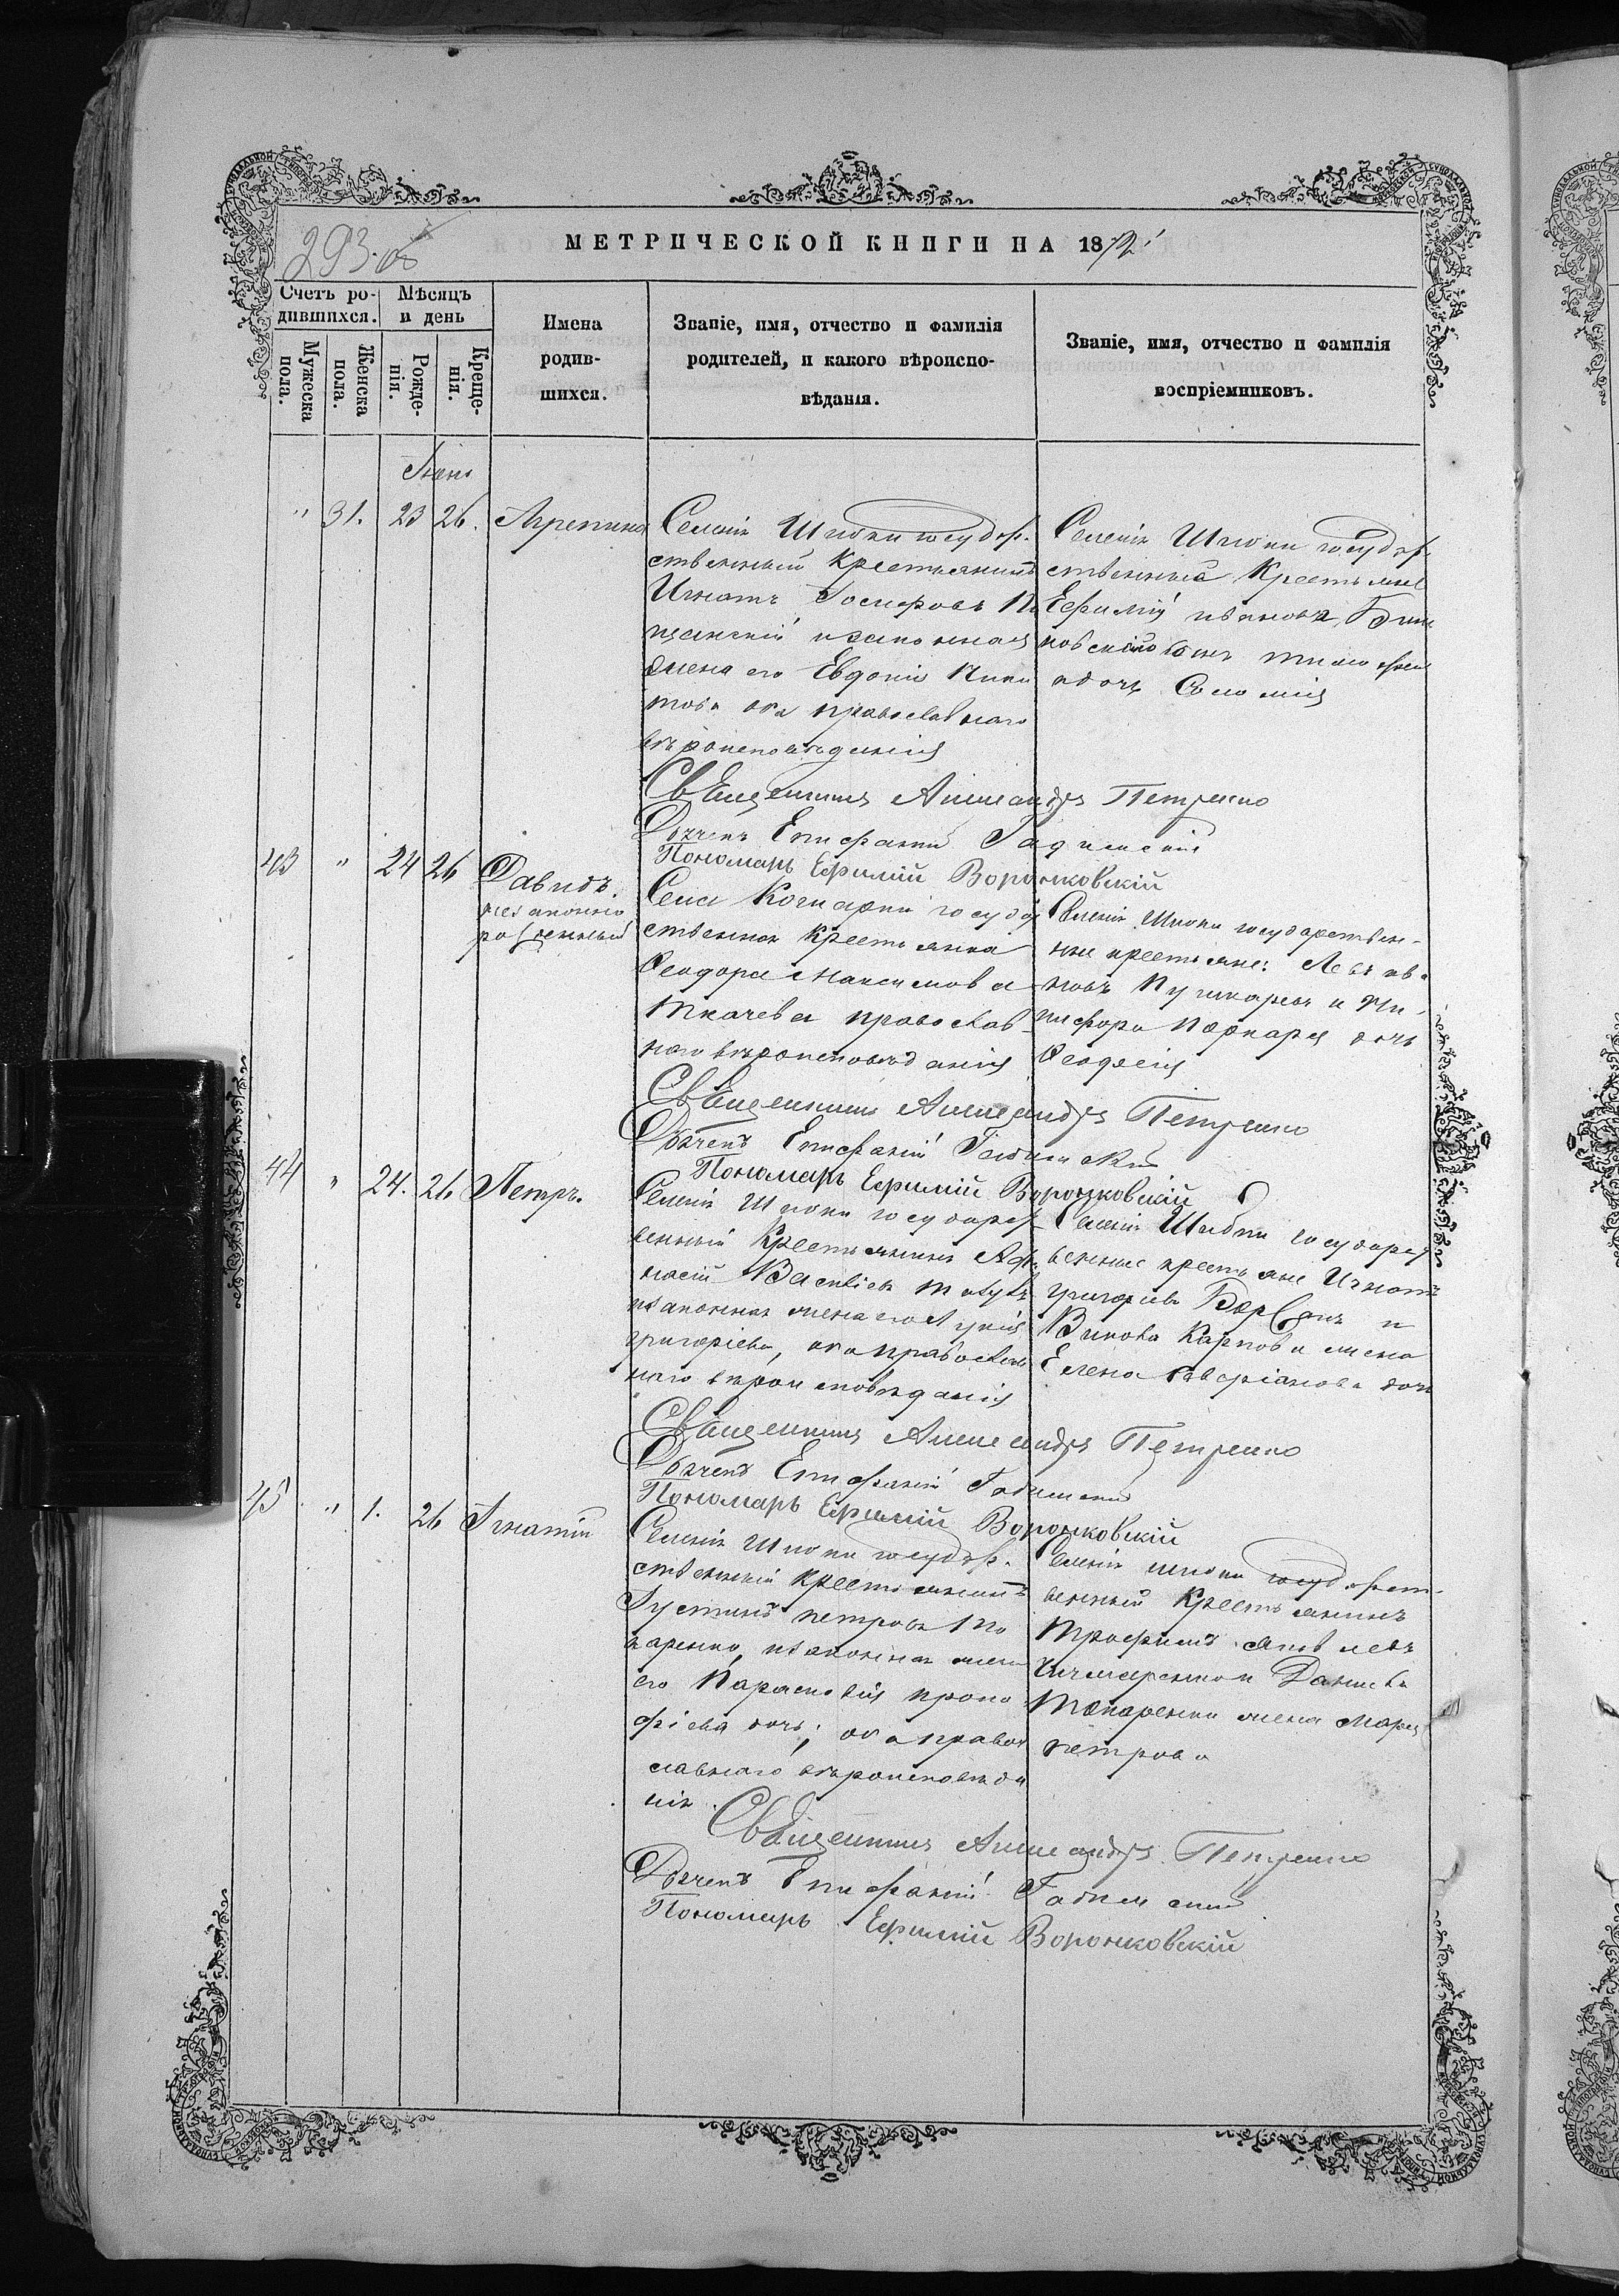 293 об
МЕТРИЧЕСКОЙ КНИГИ НА 1872
Счетъ ро-
дившихся.
Мѣсяцъ
и день
Мужеска
пола.
Женска
пола.
Рожде-
нія.
Креще-
нія.
Имена
родив-
шихся.
Званіе, имя, отчество и фамилія
родителей, и какого вѣроиспо-
вѣданія.
Званіе, имя, отчество и фамилія
воспріемниковъ.
Іюнь
" 31. 23 26. Агрепина
Селенія государ-
ственный Крестьянинъ
Игнатъ Іосифовъ
щанскій и законная
жена его Евдокія Ники
това оба православнаго
вѣроисповѣданія
Селенія государ-
ственный Крестьянинъ
Ефимій ивановъ
новскій
дочь Соломія
Священникъ Александръ Петренко
Дьячекъ Епифаній
Пономарь Ефимій Воронковскій
43 " 24 26 Давидъ.
незаконно
рожденный
Села государ
ственная Крестьянка
Феодора Максимова
Ткачева православ-
наго вѣроисповѣданія
Селенія государствен-
ные крестьяне: Левъ ива
новъ Пушкаревъ и Ни-
кифора дочь
Феодосія
Священникъ Александръ Петренко
Дьячекъ Епифаній
Пономарь Ефимій Воронковскій
44 " 24. 26 Петръ.
Селенія государст
венный Крестьянинъ Афа
насій Васильевъ
и законная жена его Лукія
григоріева, оба православ
наго вѣроисповѣданія
Селенія государст
венные крестьяне Игнатъ
григорьевъ и
Вукола Карпова жена
Елена Аверіанова дочь
Священникъ Александръ Петренко
Дьячекъ Епифаній
Пономарь Ефимій Воронковскій
45 " 1. 26 Игнатій
Селенія государ-
ственный крестьянинъ
Іустинъ петровъ То
каренко, и законная жена
его Параскевія проко
фіева дочь; оба право
славнаго вѣроисповѣда
нія.
Селенія государст-
венный Крестьянинъ
Трофимъ яковлевъ
и Данила
Токаренка жена Марія
петрова
Священникъ Александръ Петренко
Дьячекъ Епифаній
Пономарь Ефимій Воронковскій